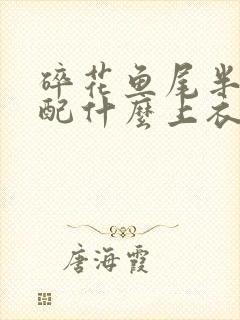 碎花鱼尾半
配什麼上衣
唐海霞